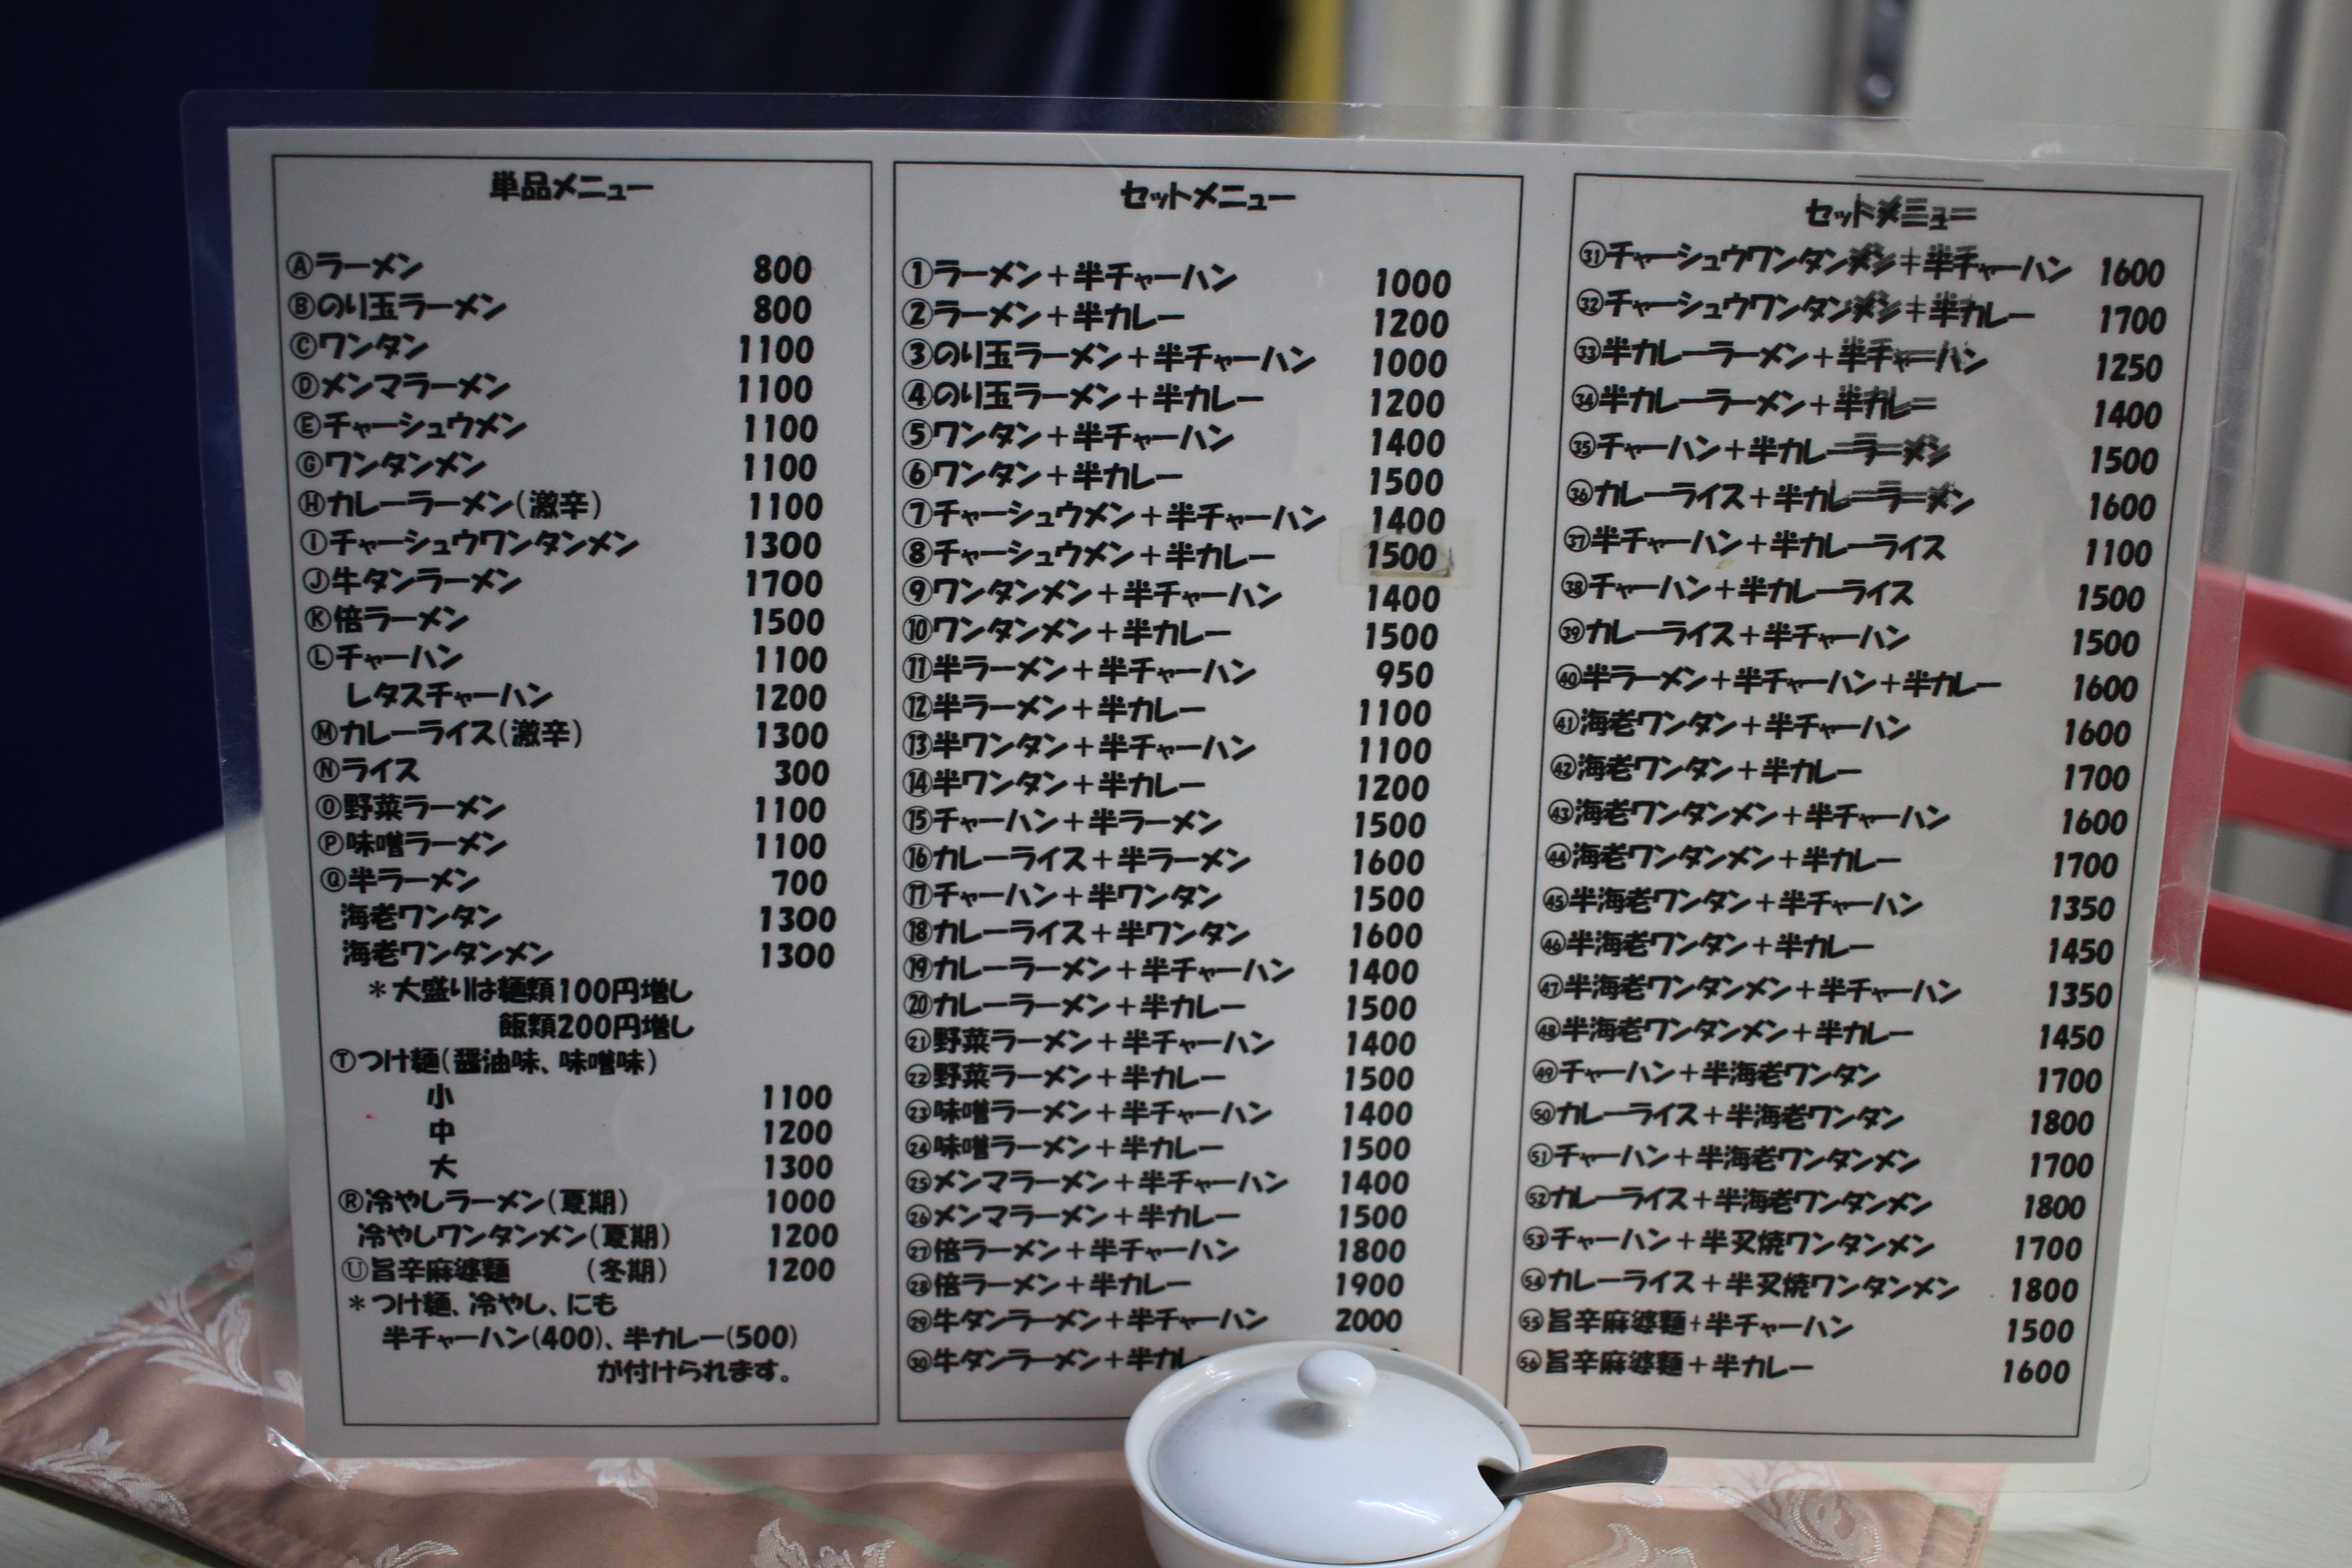 単品メニュー
Ⓐラーメン 800
Ⓑのり玉ラーメン 800
Ⓒワンタン 1100
Ⓓメンマラーメン 1100
Ⓔチャーシュウメン 1100
Ⓖワンタンメン 1100
Ⓗカレーラーメン(激辛) 1100
Ⓘチャーシュウワンタンメン 1300
Ⓙ牛タンラーメン 1700
Ⓚ倍ラーメン 1500
Ⓛチャーハン 1100
レタスチャーハン 1200
Ⓜカレーライス(激辛) 1300
Ⓝライス 300
Ⓞ野菜ラーメン 1100
Ⓟ味噌ラーメン 1100
Ⓠ半ラーメン 700
海老ワンタン 1300
海老ワンタンメン 1300
＊大盛りは麺類100円増し
飯類200円増し
Ⓣつけ麺(醤油味、味噌味)
小 1100
中 1200
大 1300
Ⓡ冷やしラーメン(夏期) 1000
冷やしワンタンメン(夏期) 1200
Ⓤ旨辛麻婆麺 (冬期) 1200
＊つけ麺、冷やし、にも
半チャーハン(400)、半カレー(500)
が付けられます。
セットメニュー
①ラーメン＋半チャーハン 1000
②ラーメン＋半カレー 1200
③のり玉ラーメン＋半チャーハン 1000
④のり玉ラーメン＋半カレー 1200
⑤ワンタン＋半チャーハン 1400
⑥ワンタン＋半カレー 1500
⑦チャーシュウメン＋半チャーハン 1400
⑧チャーシュウメン＋半カレー 1500
⑨ワンタンメン＋半チャーハン 1400
⑩ワンタンメン＋半カレー 1500
⑪半ラーメン＋半チャーハン 950
⑫半ラーメン＋半カレー 1100
⑬半ワンタン＋半チャーハン 1100
⑭半ワンタン＋半カレー 1200
⑮チャーハン＋半ラーメン 1500
⑯カレーライス＋半ラーメン 1600
⑰チャーハン＋半ワンタン 1500
⑱カレーライス＋半ワンタン 1600
⑲カレーラーメン＋半チャーハン 1400
⑳カレーラーメン＋半カレー 1500
㉑野菜ラーメン＋半チャーハン 1400
㉒野菜ラーメン＋半カレー 1500
㉓味噌ラーメン＋半チャーハン 1400
㉔味噌ラーメン＋半カレー 1500
㉕メンマラーメン＋半チャーハン 1400
㉖メンマラーメン＋半カレー 1500
㉗倍ラーメン＋半チャーハン 1800
㉘倍ラーメン＋半カレー 1900
㉙牛タンラーメン＋半チャーハン 2000
㉚牛タンラーメン＋半カレ
セットメニュー
㉛チャーシュウワンタンメン＋半チャーハン 1600
㉜チャーシュウワンタンメン＋半カレー 1700
㉝半カレーラーメン＋半チャーハン 1250
㉞半カレーラーメン＋半カレー 1400
㉟チャーハン＋半カレーラーメン 1500
㊱カレーライス＋半カレーラーメン 1600
㊲半チャーハン＋半カレーライス 1100
㊳チャーハン＋半カレーライス 1500
㊴カレーライス＋半チャーハン 1500
㊵半ラーメン＋半チャーハン＋半カレー 1600
㊶海老ワンタン＋半チャーハン 1600
㊷海老ワンタン＋半カレー 1700
㊸海老ワンタンメン＋半チャーハン 1600
㊹海老ワンタンメン＋半カレー 1700
㊺半海老ワンタン＋半チャーハン 1350
㊻半海老ワンタン＋半カレー 1450
㊼半海老ワンタンメン＋半チャーハン 1350
㊽半海老ワンタンメン＋半カレー 1450
㊾チャーハン＋半海老ワンタン 1700
㊿カレーライス＋半海老ワンタン 1800
51チャーハン＋半海老ワンタンメン 1700
52カレーライス＋半海老ワンタンメン 1800
53チャーハン＋半叉焼ワンタンメン 1700
54カレーライス＋半叉焼ワンタンメン 1800
55旨辛麻婆麺+半チャーハン 1500
56旨辛麻婆麺＋半カレー 1600